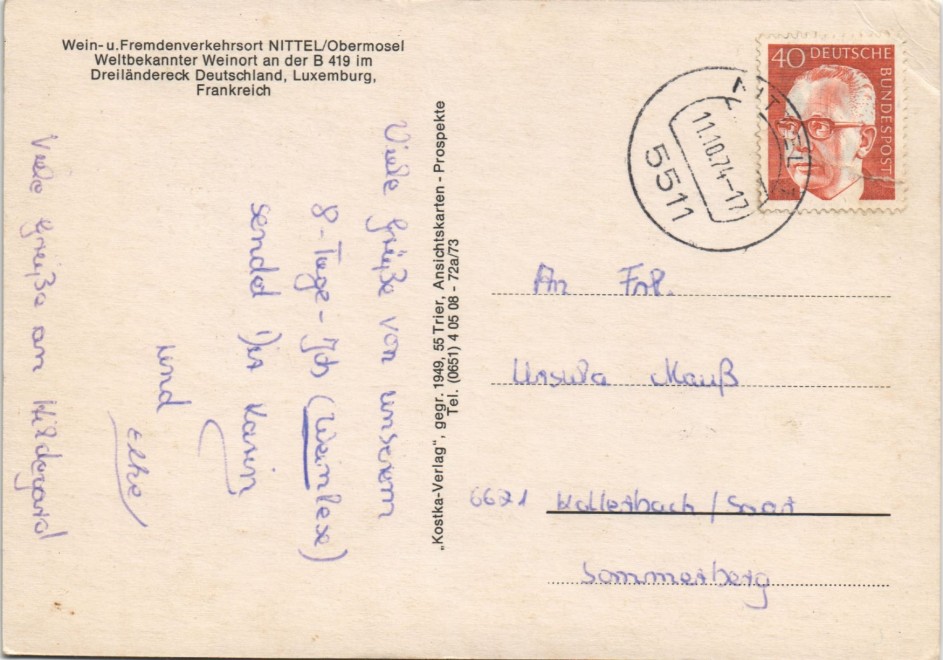 Wein- u. Fremdenverkehrsort NITTEL/Obermosel
Weltbekannter Weinort an der B 419 im
Dreiländereck Deutschland, Luxemburg,
Frankreich
Viele Grüße von unserem
8-Tage-Job (Weinlese)
sendet Dir Karin
und
Elke
Viele Grüße an Hildegard
„Kostka-Verlag", gegr. 1949, 55 Trier, Ansichtskarten - Prospekte
Tel. (0651) 4 05 08 - 72a/73
40 DEUTSCHE
BUNDESPOST
NITTEL
11.10.74-17
5511
An Frl.
Ursula Mauß
6621 /Saar
Sommerberg